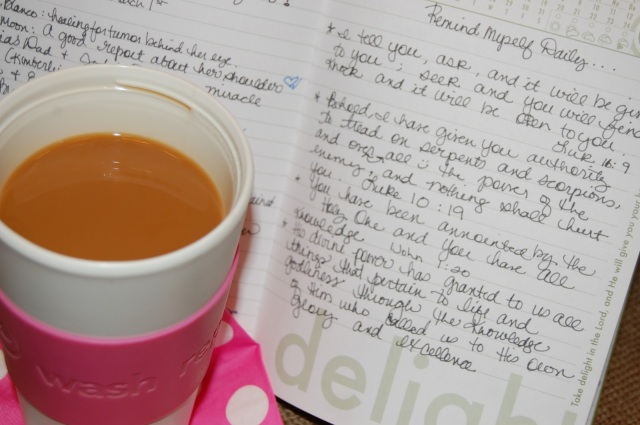 Blanco: healing for tumor behind her eye.
Moon: A good report about her shoulder
Dad &
miracle
Remind Myself Daily....
* I tell you, ask, and it will be
to you; seek and you will find
knock and it will be open to you.
Luk 11:9
* Behold, I have given you authority
to tread on serpents and scorpions,
and over all the power of the
enemy, and nothing shall hurt
you. Luke 10:19
* You have been annointed by the
Holy One and you have all
knowledge. John 1:20
* divine power has granted to us all
things that pertain to life and
godliness through the knowledge
of Him who called us to His own
glory and excellence
delight
Take delight in the Lord, and He will give you
wash re